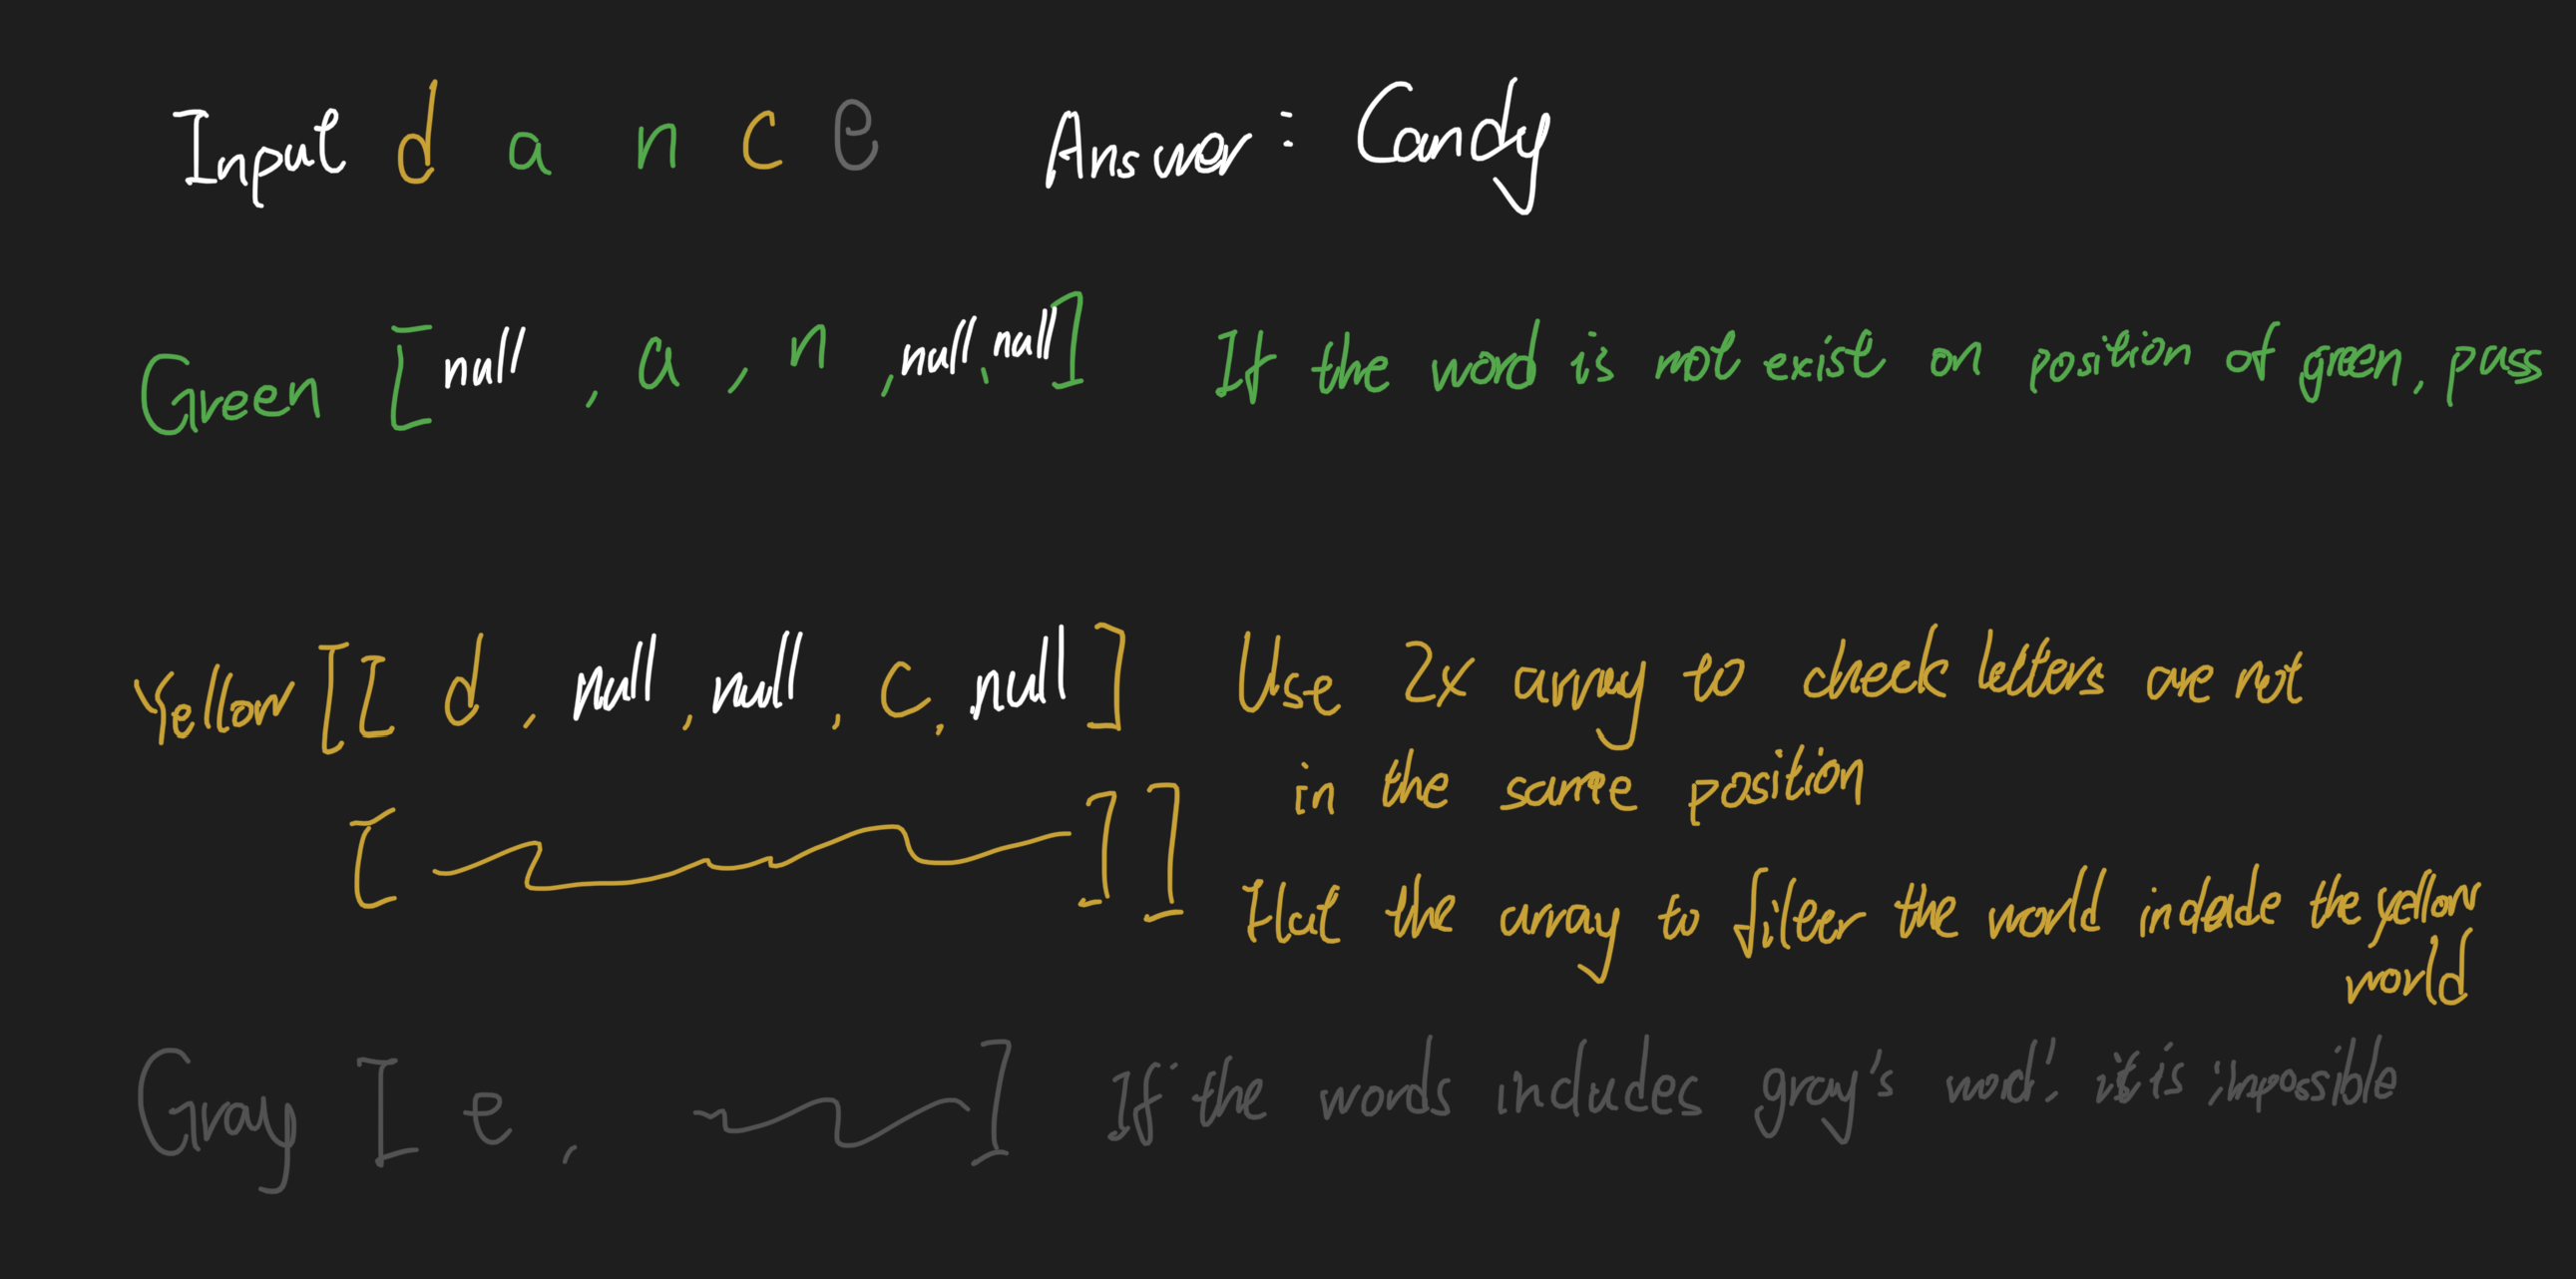 Input d a n c e Answer : Candy
Green [ null , a , n , null, null ] If the word is not exist on position of green, pass
Yellow [ [ d , null , null , c , null ] Use 2x array to check letters are not
in the same position
[ ] ] Flat the array to filter the world include the yellow
world
Gray [ e , ] If the words includes gray's word, it is impossible